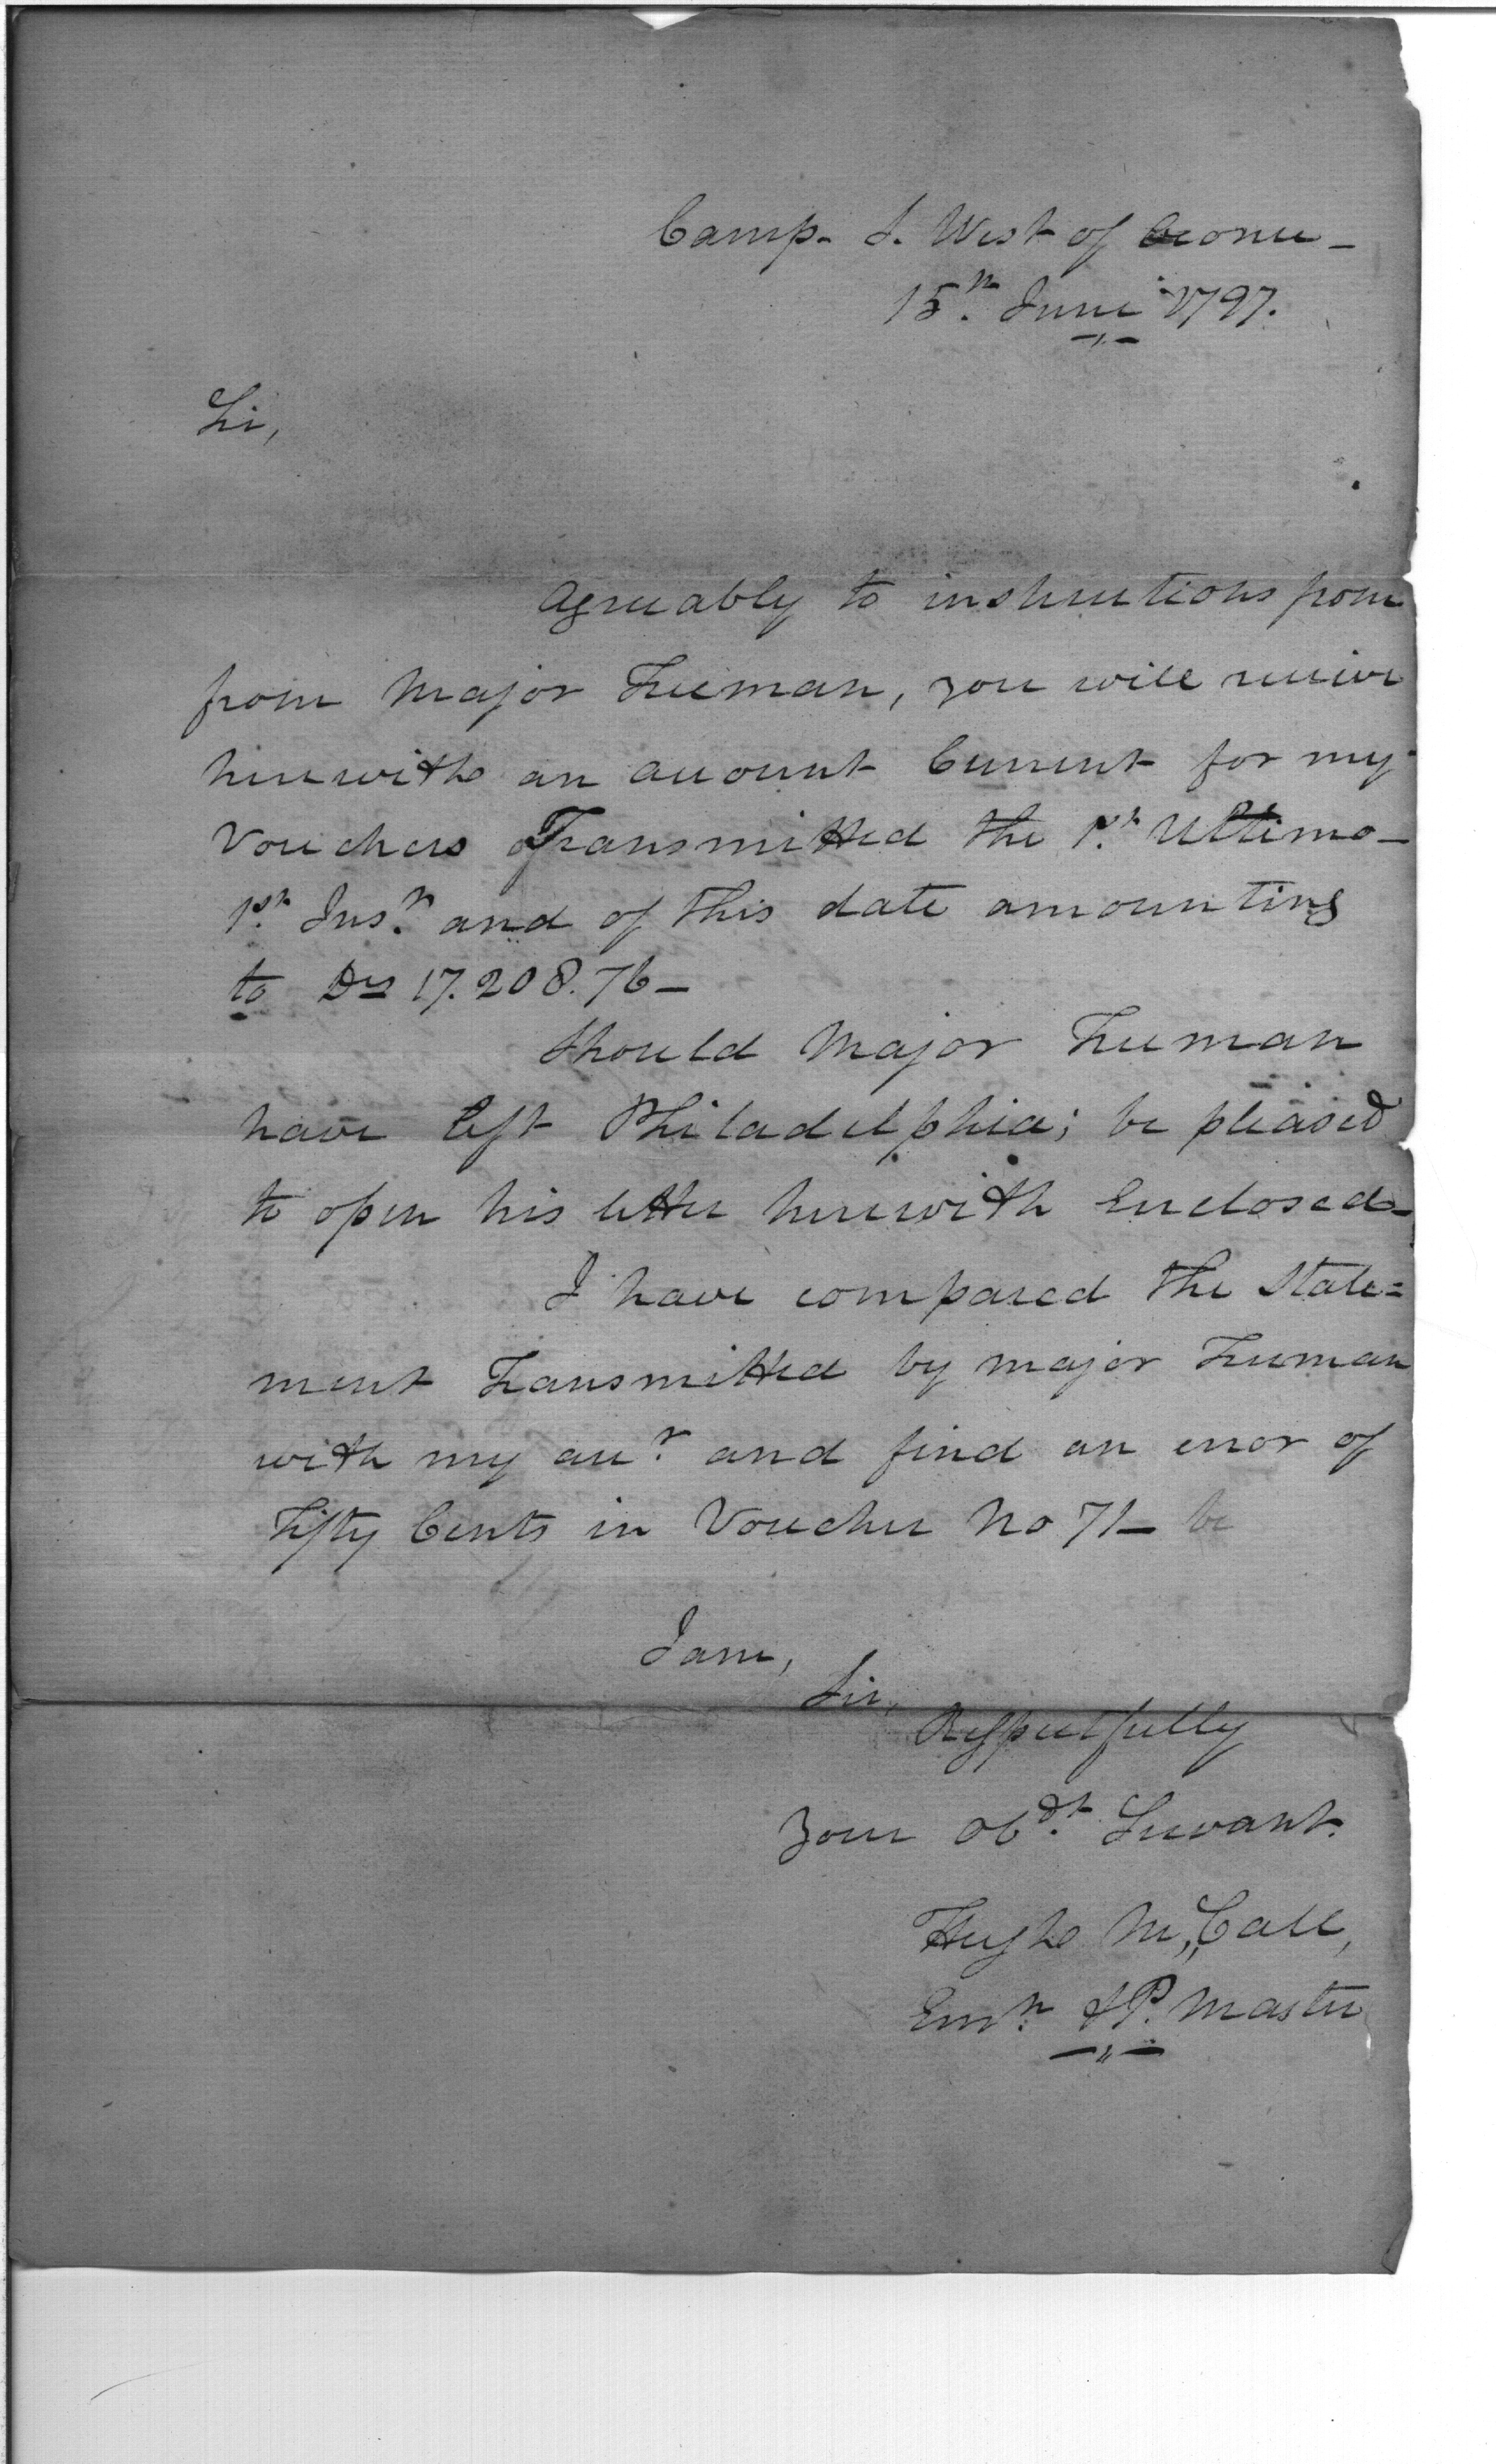 Camp. S. West of Oconee —
15th. June 1797.
Sir,
Agreeably to instructions from
from Major Freeman, you will receive
herewith an account Current for my
Vouchers Transmitted the 1st. Ultimo —
1st. Inst. and of this date amounting
to Drs 17.208.76 —
Should Major Freeman
have left Philadelphia; be pleased
to open his letter herewith Enclosed —
I have compared the State=
ment Transmitted by major Freeman
with my acct. and find an error of
Fifty Cents in Voucher No 71 — be
I am,
Sir,
Respectfully
Your Obdt. Servant.
Hugh M,,Call,
Ensn. & P. Master